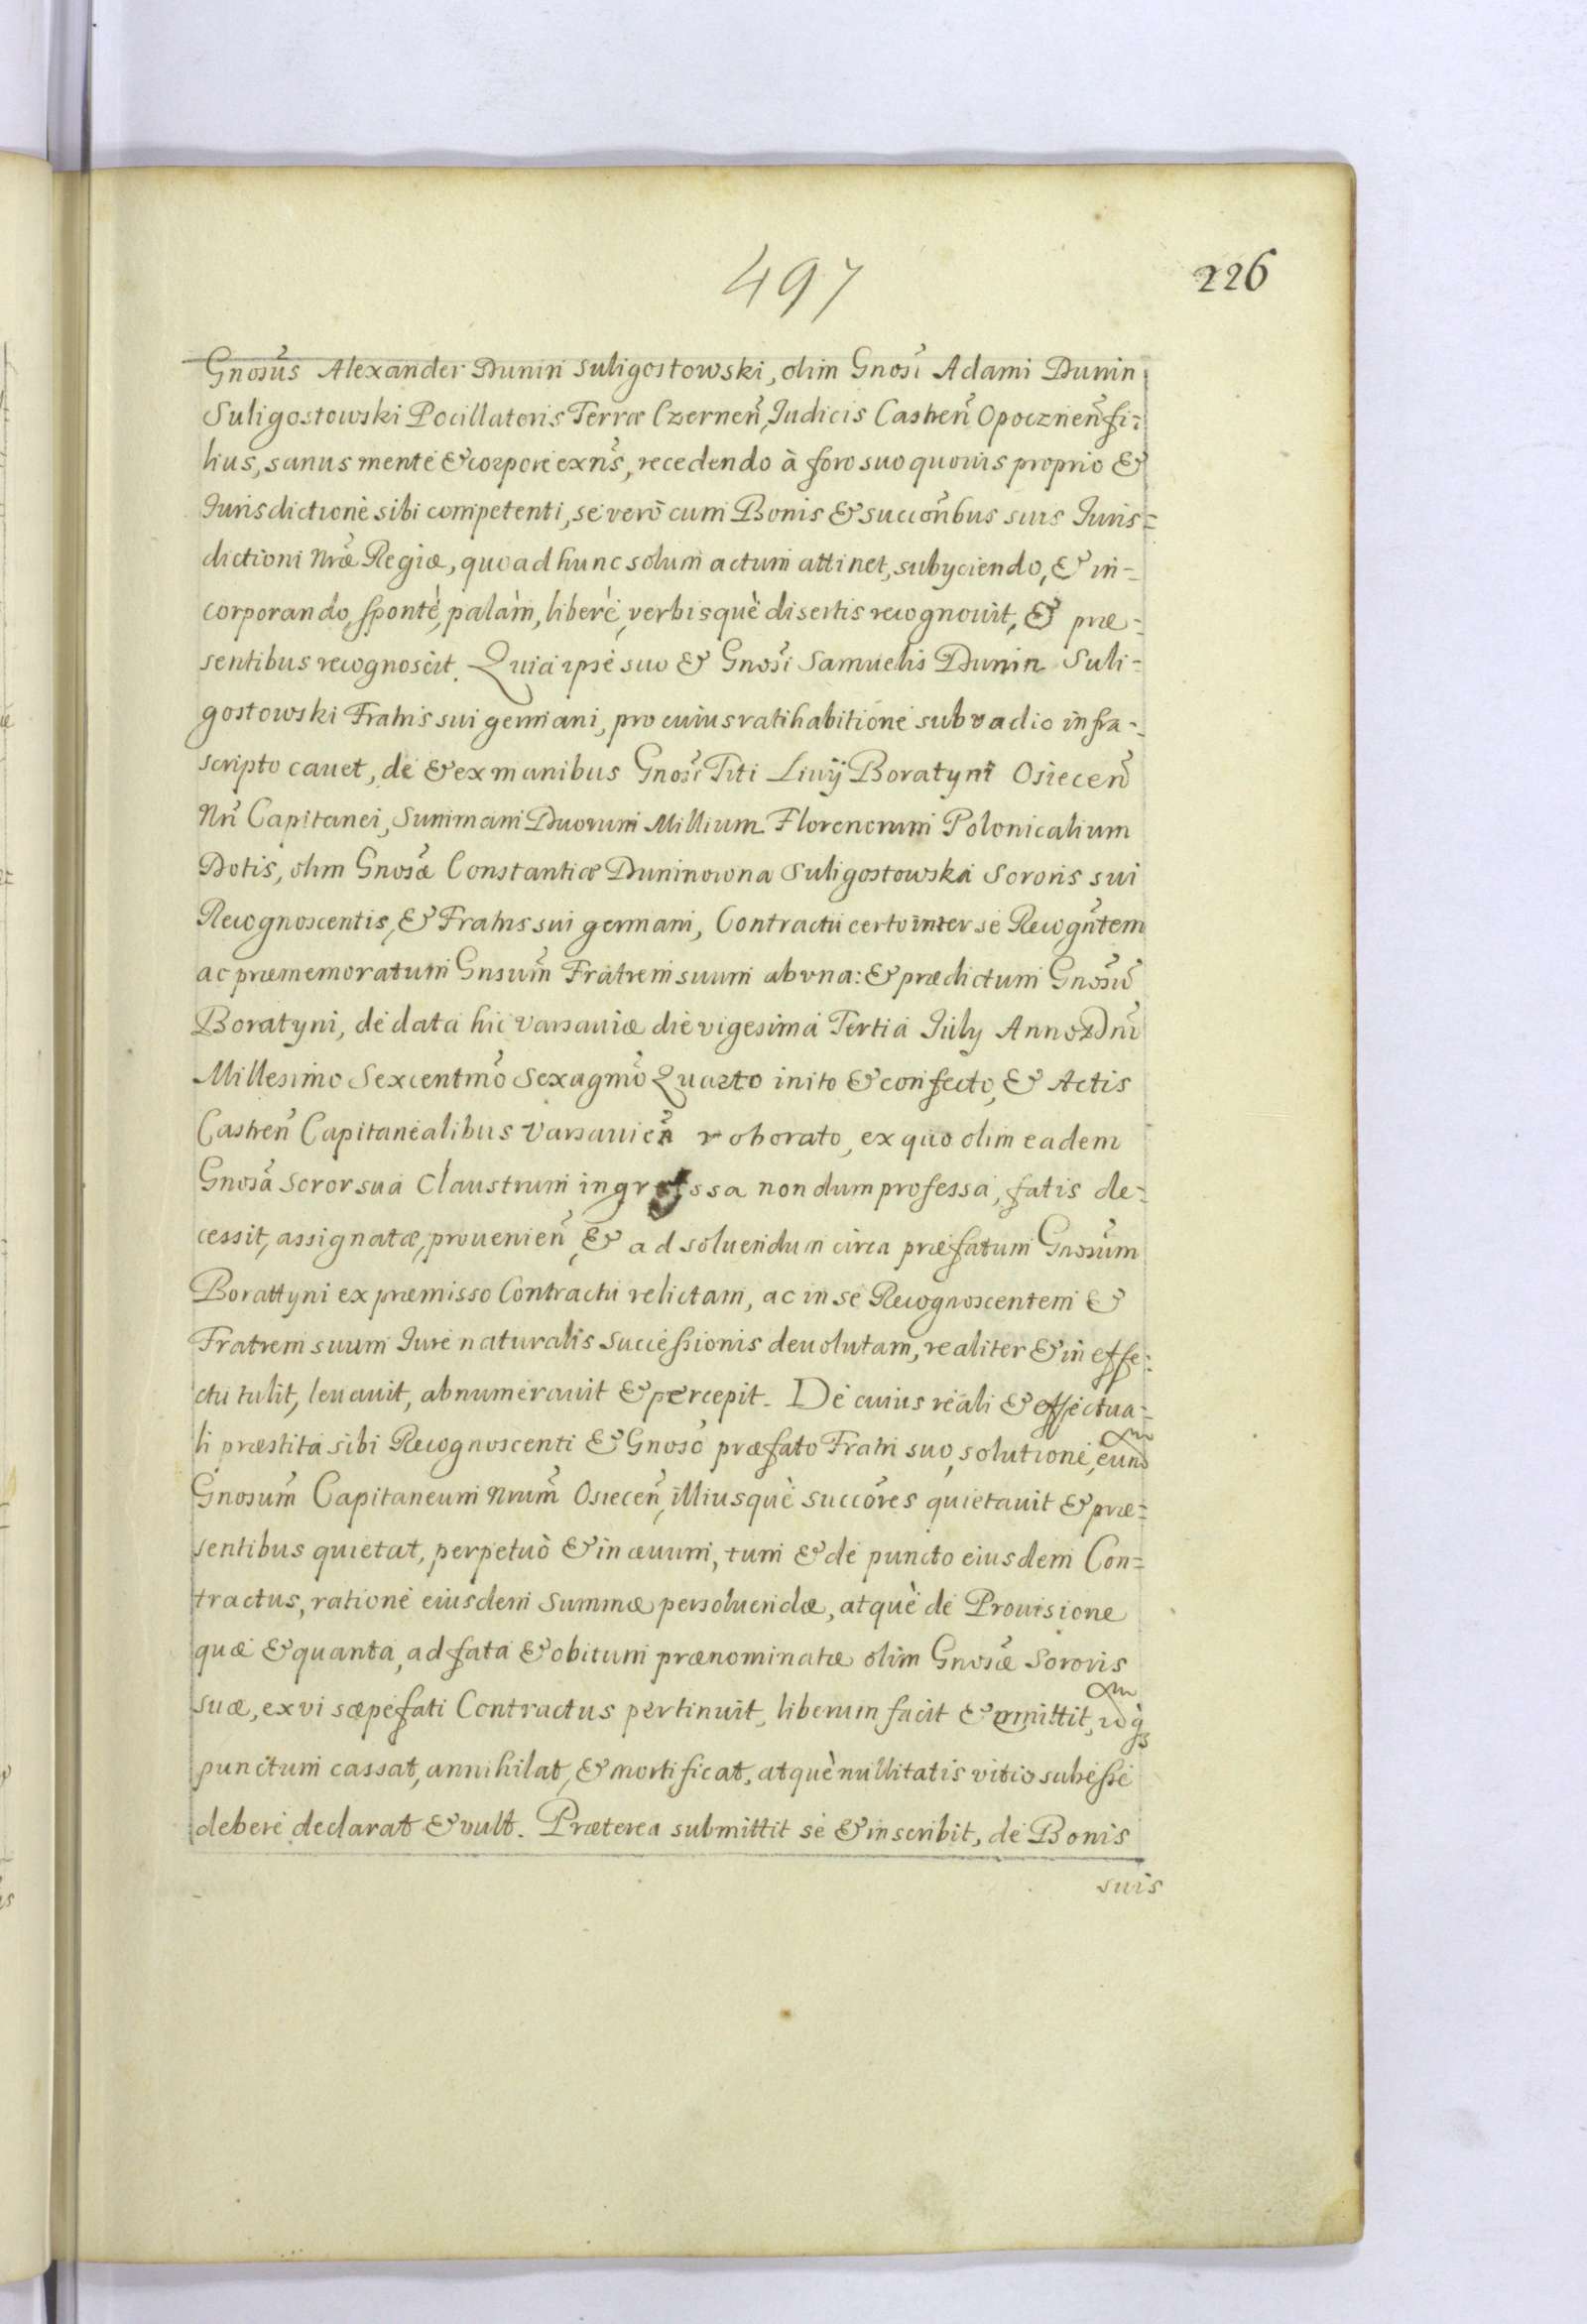 497
226
Gnosus Alexander Dunin Suligostowski, olim Gnosi Adami Dunin
Suligostowski Pocillatoris Terræ Czernen, Iudicis Castren Opocznen fi=
lius, sanus mente & corpore exns, recedendo à foro suo quouis proprio &
Iurisdictione sibi competenti, se verò cum Bonis & succonbus suis Iuris=
dictioni Nræ Regiæ, quo ad hunc solum actum attinet, subyciendo, & in=
corporando, spontè, palàm, liberè, verbisquè disertis recognouit, & præ=
sentibus recognoscit. Quia ipse suo & Gnosi Samuelis Dunin Suli=
gostowski Fratris sui germani, pro cuius ratihabitione sub vadio infra=
scripto cauet, de & ex manibus Gnosi Titi Liuij Boratyni Osiecen
Nri Capitanei, Summam Duorum Millium Florenorum Polonicalium
Dotis, olim Gnosæ Constantiæ Duninowna Suligostowska Sororis sui
Recognoscentis, & Fratris sui germani, Contractu certo inter se Recogntem
ac præmemoratum Gnsum Fratrem suum ab vna: & prædictum Gnosu
Boratyni, de data hic Varsauiæ die vigesima Tertia Iuly Anno Dni
Millesimo Sexcentmo Sexagmo Quarto inito & confecto, & Actis
Castren Capitanealibus Varsauien roborato, ex quo olim eadem
Gnosa Soror sua Claustrum ingressa nondum professa, fatis de=
cessit, assignatæ, prouenien, & ad soluendum circa præfatum Gnosum
Borattyni ex præmisso Contractu relictam, ac in se Recognoscentem &
Fratrem suum Iure naturalis Successionis deuolutam, realiter & in effe=
ctu tulit, leuauit, abnumerauit & percepit. De cuius reali & effectua=
li præstita sibi Recognoscenti & Gnoso præfato Fratri suo, solutione, eund
Gnosum Capitaneum Nrum Osiecen, illiusquè succores quietauit & præ=
sentibus quietat, perpetuò & in æuum, tum & de puncto eiusdem Con=
tractus, ratione eiusdem Summæ persoluendæ, atquè de Prouisione
quæ & quanta, ad fata & obitum prænominatæ olim Gnosæ Sororis
suæ, ex vi sæpefati Contractus pertinuit, liberum facit &
punctum cassat, annihilat, & mortificat, atquè nullitatis vitio subesse
debere declarat & vult. Præterea submittit se & inscribit, de Bonis
suis